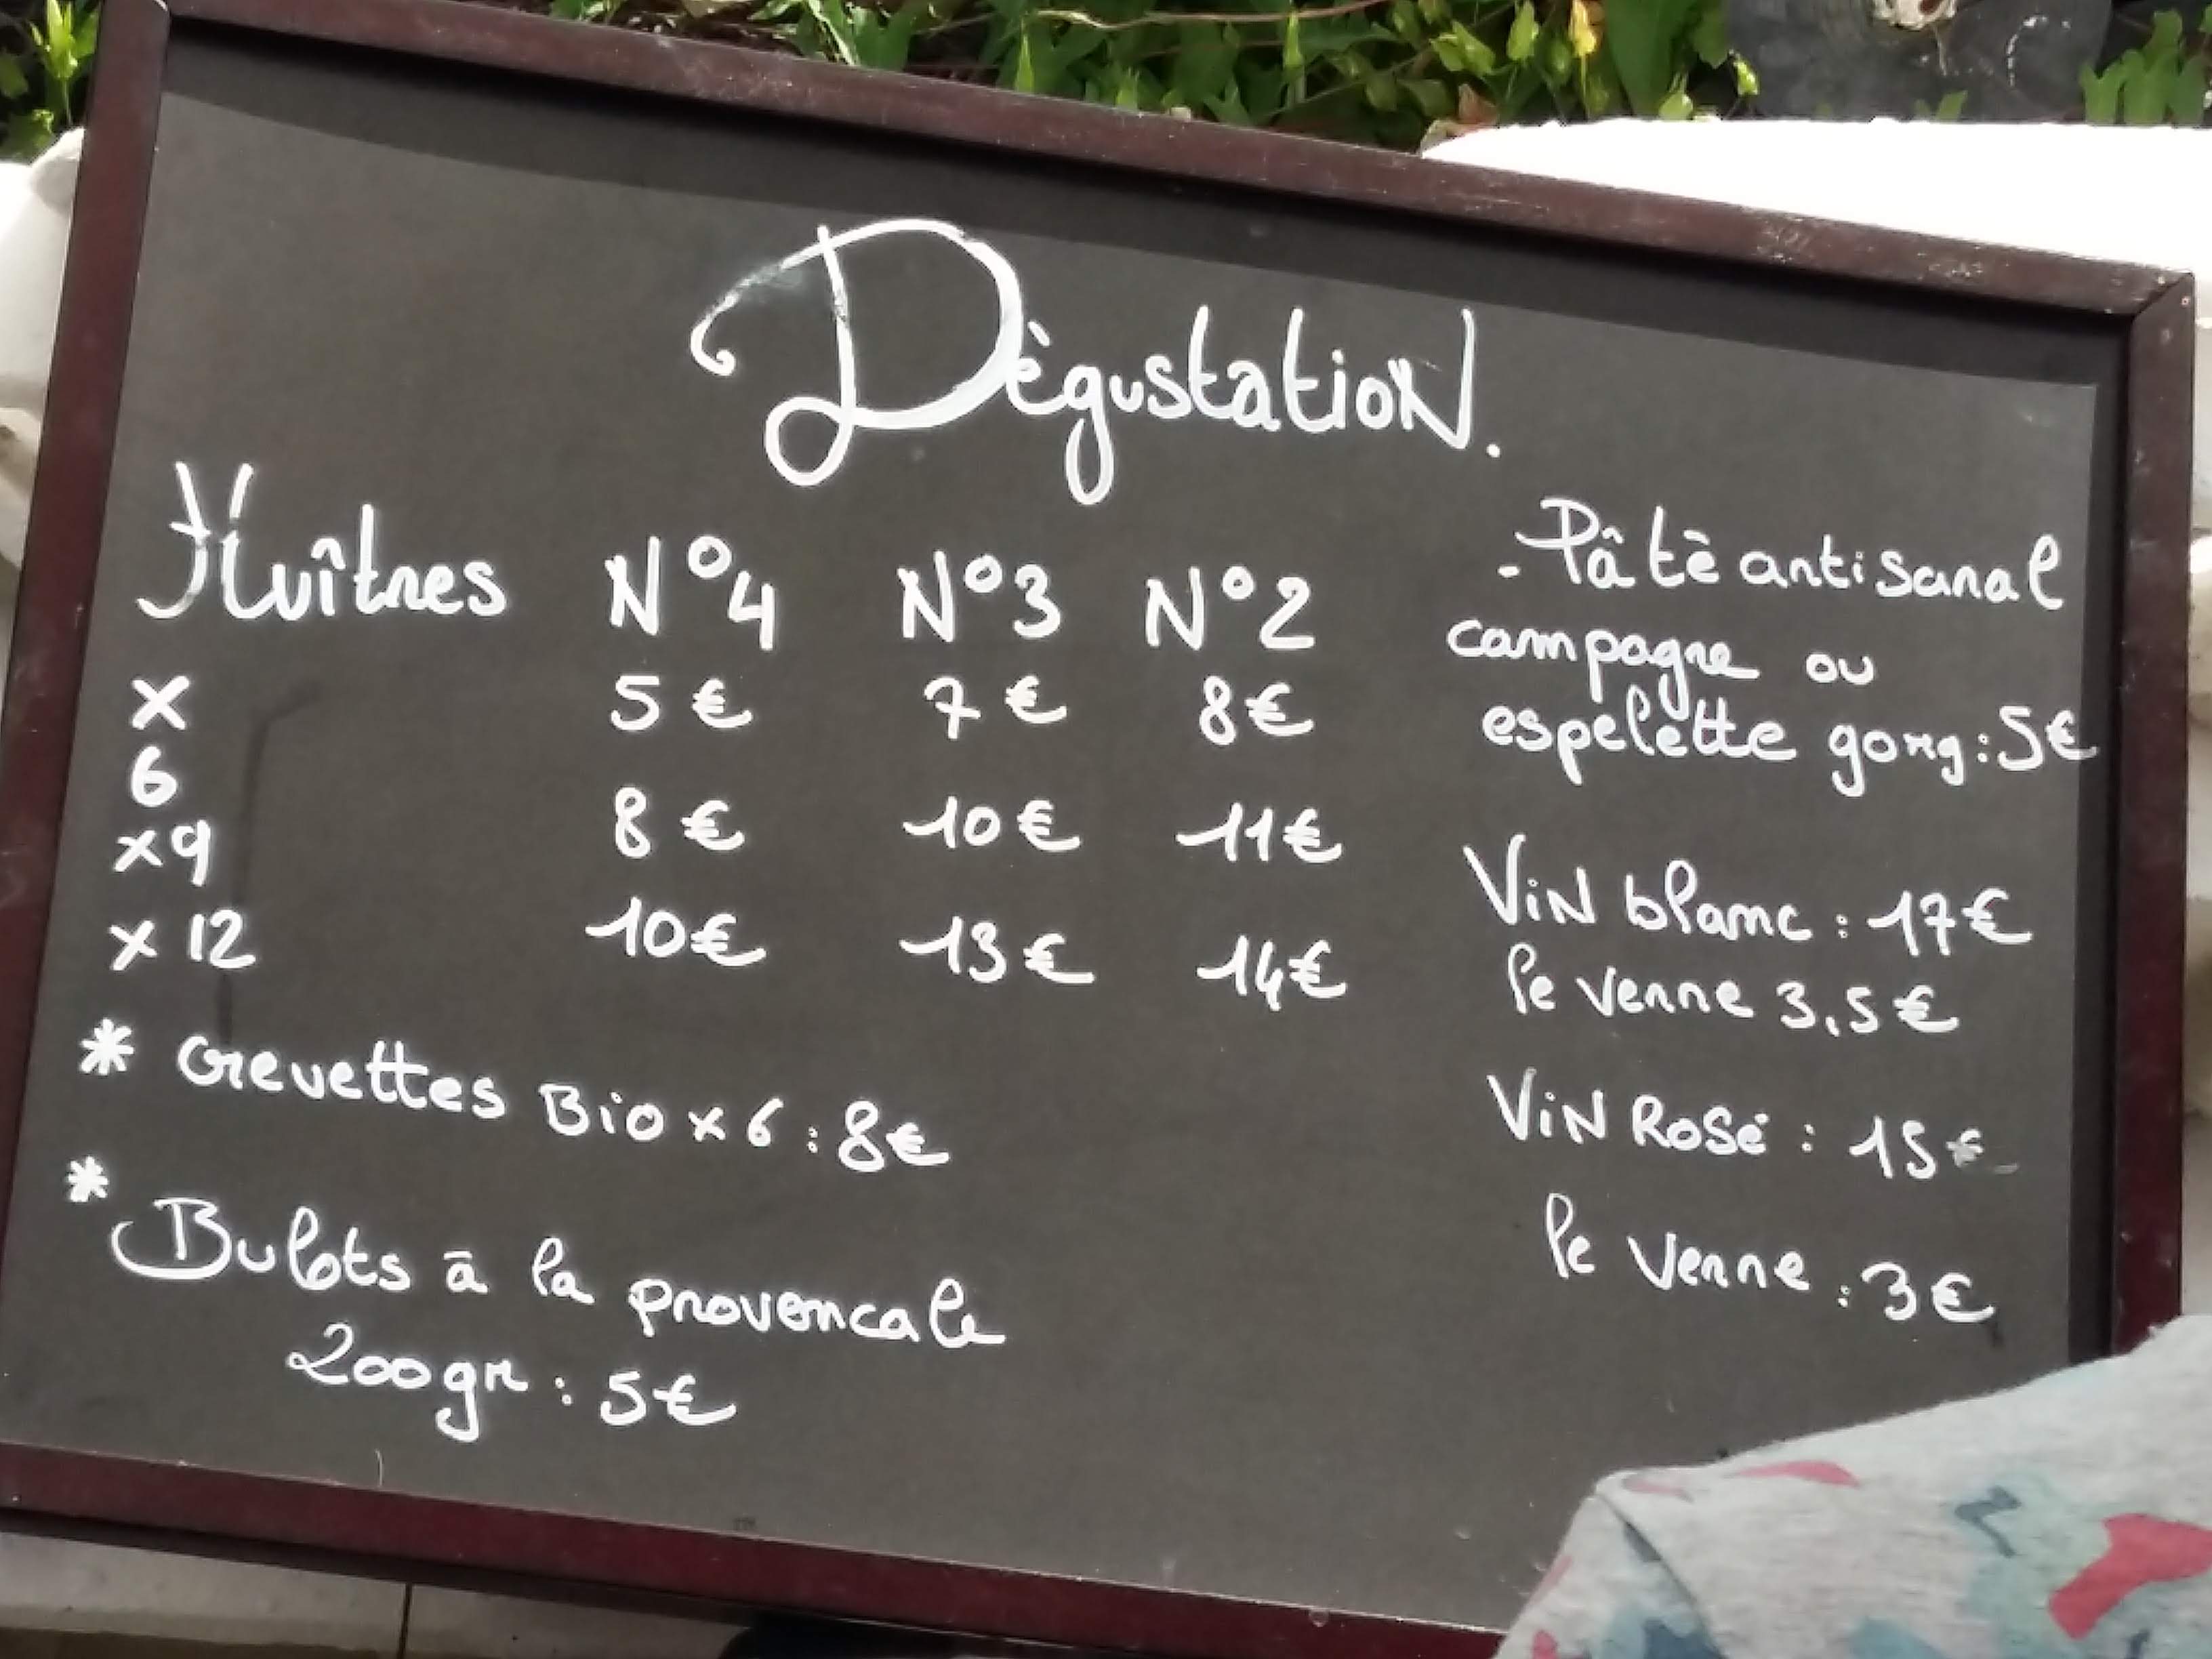 Dègustation.
Huîtres N°4 N°3 N°2
x 5€ 7€ 8€
6
x9 8€ 10€ 11€
x 12 10€ 13€ 14€
* Crevettes Bio x 6 : 8€
* Bulots à la provencale
200gr : 5€
- Pâtè artisanal
campagne ou
espelette gorg : 5€
ViN blanc : 17€
le verre 3,5€
ViN Rosé : 15€
le verre : 3€